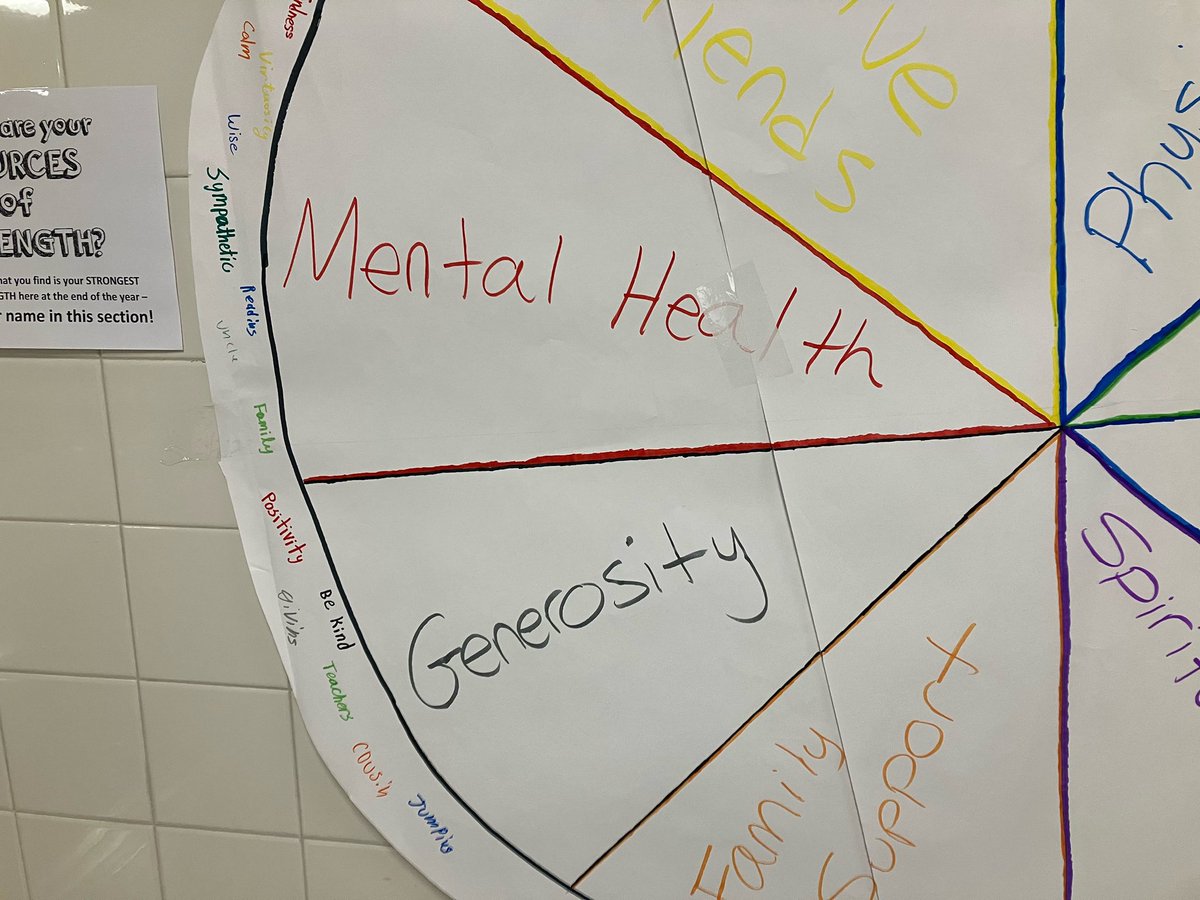 are your
URCES
of
ENGTH?
hat you find is your STRONGEST
GTH here at the end of the year –
r name in this section!
ndness
Calm
Virtuosity
Wise
Sympathetic
Reading
uncle
Family
Positivity
Be Kind
giving
Teachers
cousin
Jumping
Mental Health
ive
iends
Phys
Generosity
Family
Support
Spirit